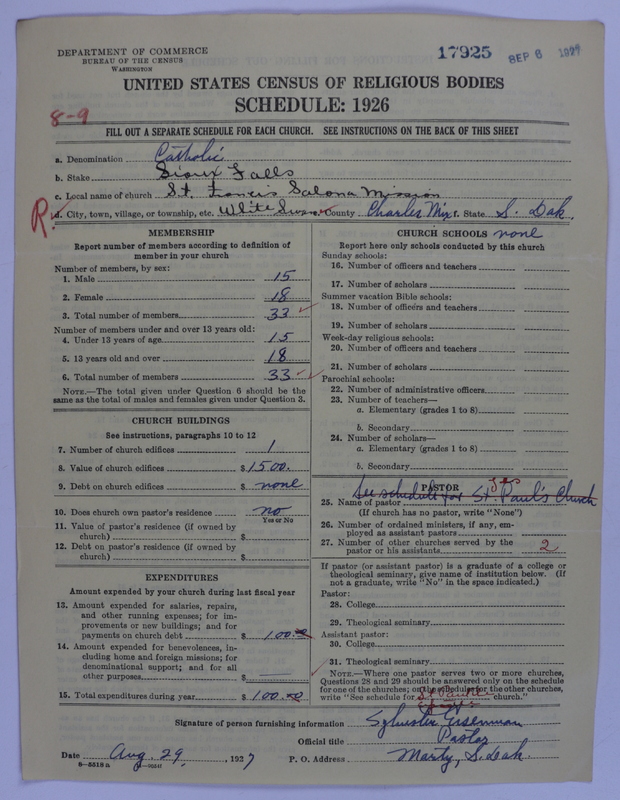 DEPARTMENT OF COMMERCE
BUREAU OF THE CENSUS
WASHINGTON
17925
SEP 6 1927
UNITED STATES CENSUS OF RELIGIOUS BODIES
SCHEDULE: 1926
8-9
FILL OUT A SEPARATE SCHEDULE FOR EACH CHURCH. SEE INSTRUCTIONS ON THE BACK OF THIS SHEET
a. Denomination Catholic
b. Stake Sioux Falls
c. Local name of church St. Francis Salona Mission
R. d. City, town, village, or township, etc. White Swan e. County Charles Mix f. State S. Dak.
MEMBERSHIP
Report number of members according to definition of
member in your church
Number of members, by sex:
1. Male 15
2. Female 18
3. Total number of members 33
Number of members under and over 13 years old:
4. Under 13 years of age 15
5. 13 years old and over 18
6. Total number of members 33
NOTE.—The total given under Question 6 should be the
same as the total of males and females given under Question 3.
CHURCH BUILDINGS
See instructions, paragraphs 10 to 12
7. Number of church edifices 1
8. Value of church edifices $1500.
9. Debt on church edifices $ none
10. Does church own pastor's residence no
Yes or No
11. Value of pastor's residence (if owned by
church) $
12. Debt on pastor's residence (if owned by
church) $
EXPENDITURES
Amount expended by your church during last fiscal year
13. Amount expended for salaries, repairs,
and other running expenses; for im-
provements or new buildings; and for
payments on church debt $ 100.00
14. Amount expended for benevolences, in-
cluding home and foreign missions; for
denominational support; and for all
other purposes $
15. Total expenditures during year $100.00
CHURCH SCHOOLS none
Report here only schools conducted by this church
Sunday schools:
16. Number of officers and teachers
17. Number of scholars
Summer vacation Bible schools:
18. Number of officers and teachers
19. Number of scholars
Week-day religious schools:
20. Number of officers and teachers
21. Number of scholars
Parochial schools:
22. Number of administrative officers
23. Number of teachers—
a. Elementary (grades 1 to 8)
b. Secondary
24. Number of scholars—
a. Elementary (grades 1 to 8)
b. Secondary
PASTOR
25. Name of pastor See schedule for St. Paul's Church
(If church has no pastor, write "None")
26. Number of ordained ministers, if any, em-
ployed as assistant pastors
27. Number of other churches served by the
pastor or his assistants 2
If pastor (or assistant pastor) is a graduate of a college or
theological seminary, give name of institution below. (If
not a graduate, write "No" in the space indicated.)
Pastor:
28. College
29. Theological seminary
Assistant pastor:
30. College
31. Theological seminary
NOTE.—Where one pastor serves two or more churches,
Questions 28 and 29 should be answered only on the schedule
for one of the churches; on the schedules for the other churches,
write "See schedule for St Paul church."
Signature of person furnishing information Sylvester Eisenman
Official title Pastor
Date Aug. 29, 1927 P. O. Address Marty, S. Dak.
8—5518 a